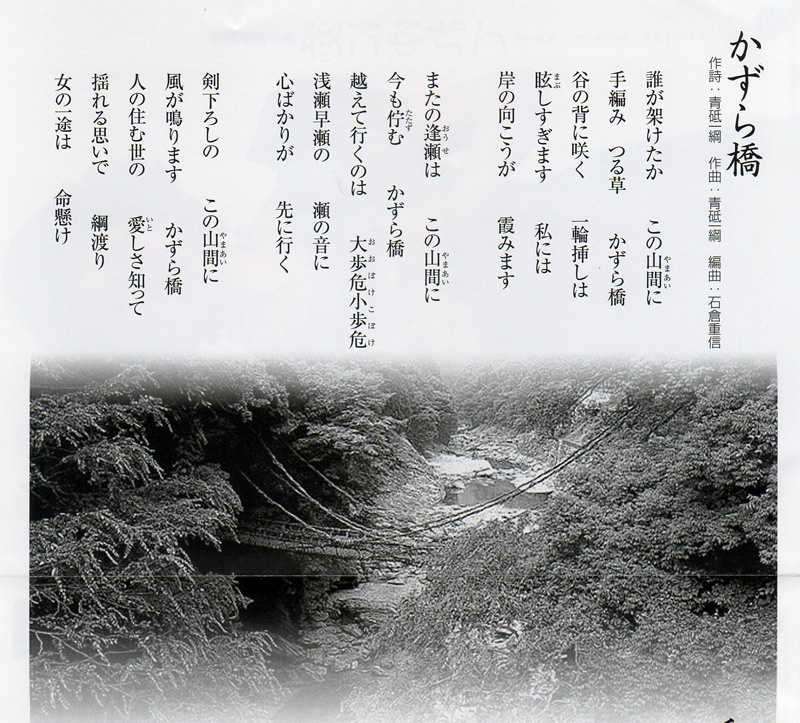 かずら橋
作詩：青砥一綱　作曲：青砥一綱　編曲：石倉重信
誰が架けたか　この山間に
手編み　つる草　かずら橋
谷の背に咲く　一輪挿しは
眩しすぎます　私には
岸の向こうが　霞みます
またの逢瀬は　この山間に
今も佇む　かずら橋
越えて行くのは　大歩危小歩危
浅瀬早瀬の　瀬の音に
心ばかりが　先に行く
剣下ろしの　この山間に
風が鳴ります　かずら橋
人の住む世の　愛しさ知って
揺れる思いで　綱渡り
女の一途は　命懸け